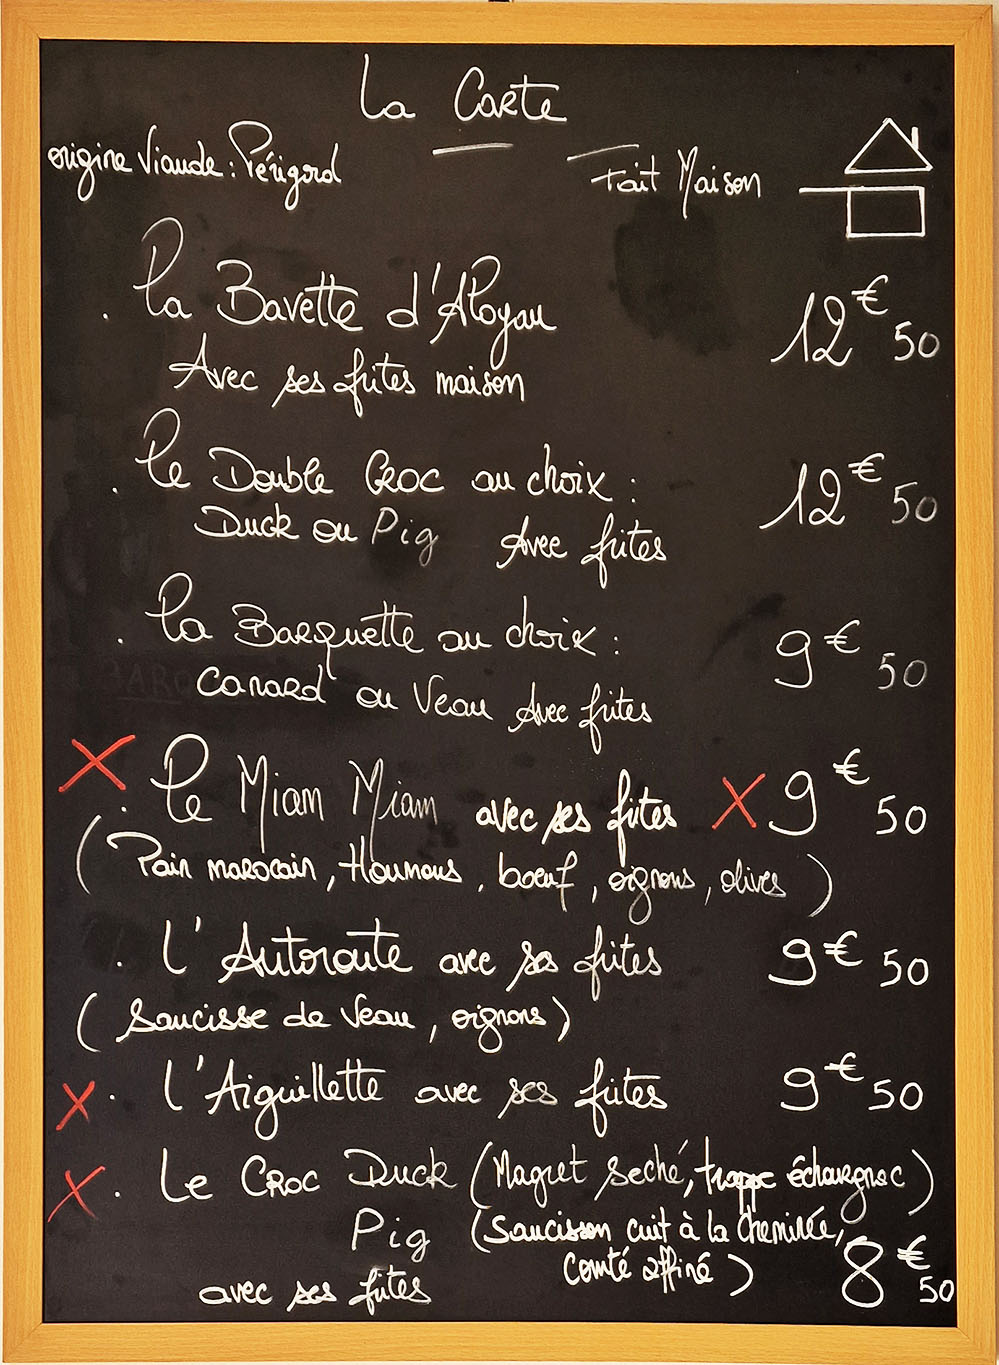 La Carte
origine Viande : Périgord
Fait Maison
. La Bavette d'Aloyau 12€50
Avec ses frites maison
. Le Double Croc au choix : 12€50
Duck ou Pig Avec frites
. La Barquette au choix : 9€50
Canard ou Veau Avec frites
. Le Miam Miam avec ses frites 9€50
(Pain marocain, Houmous, boeuf, oignons, olives)
. L'Autoroute avec ses frites 9€50
(Saucisse de Veau, oignons)
. L'Aiguillette avec ses frites 9€50
. Le Croc Duck (Magret seché, trappe échourgnac)
Pig (Saucisson cuit à la cheminée,
comté affiné) 8€50
avec ses frites